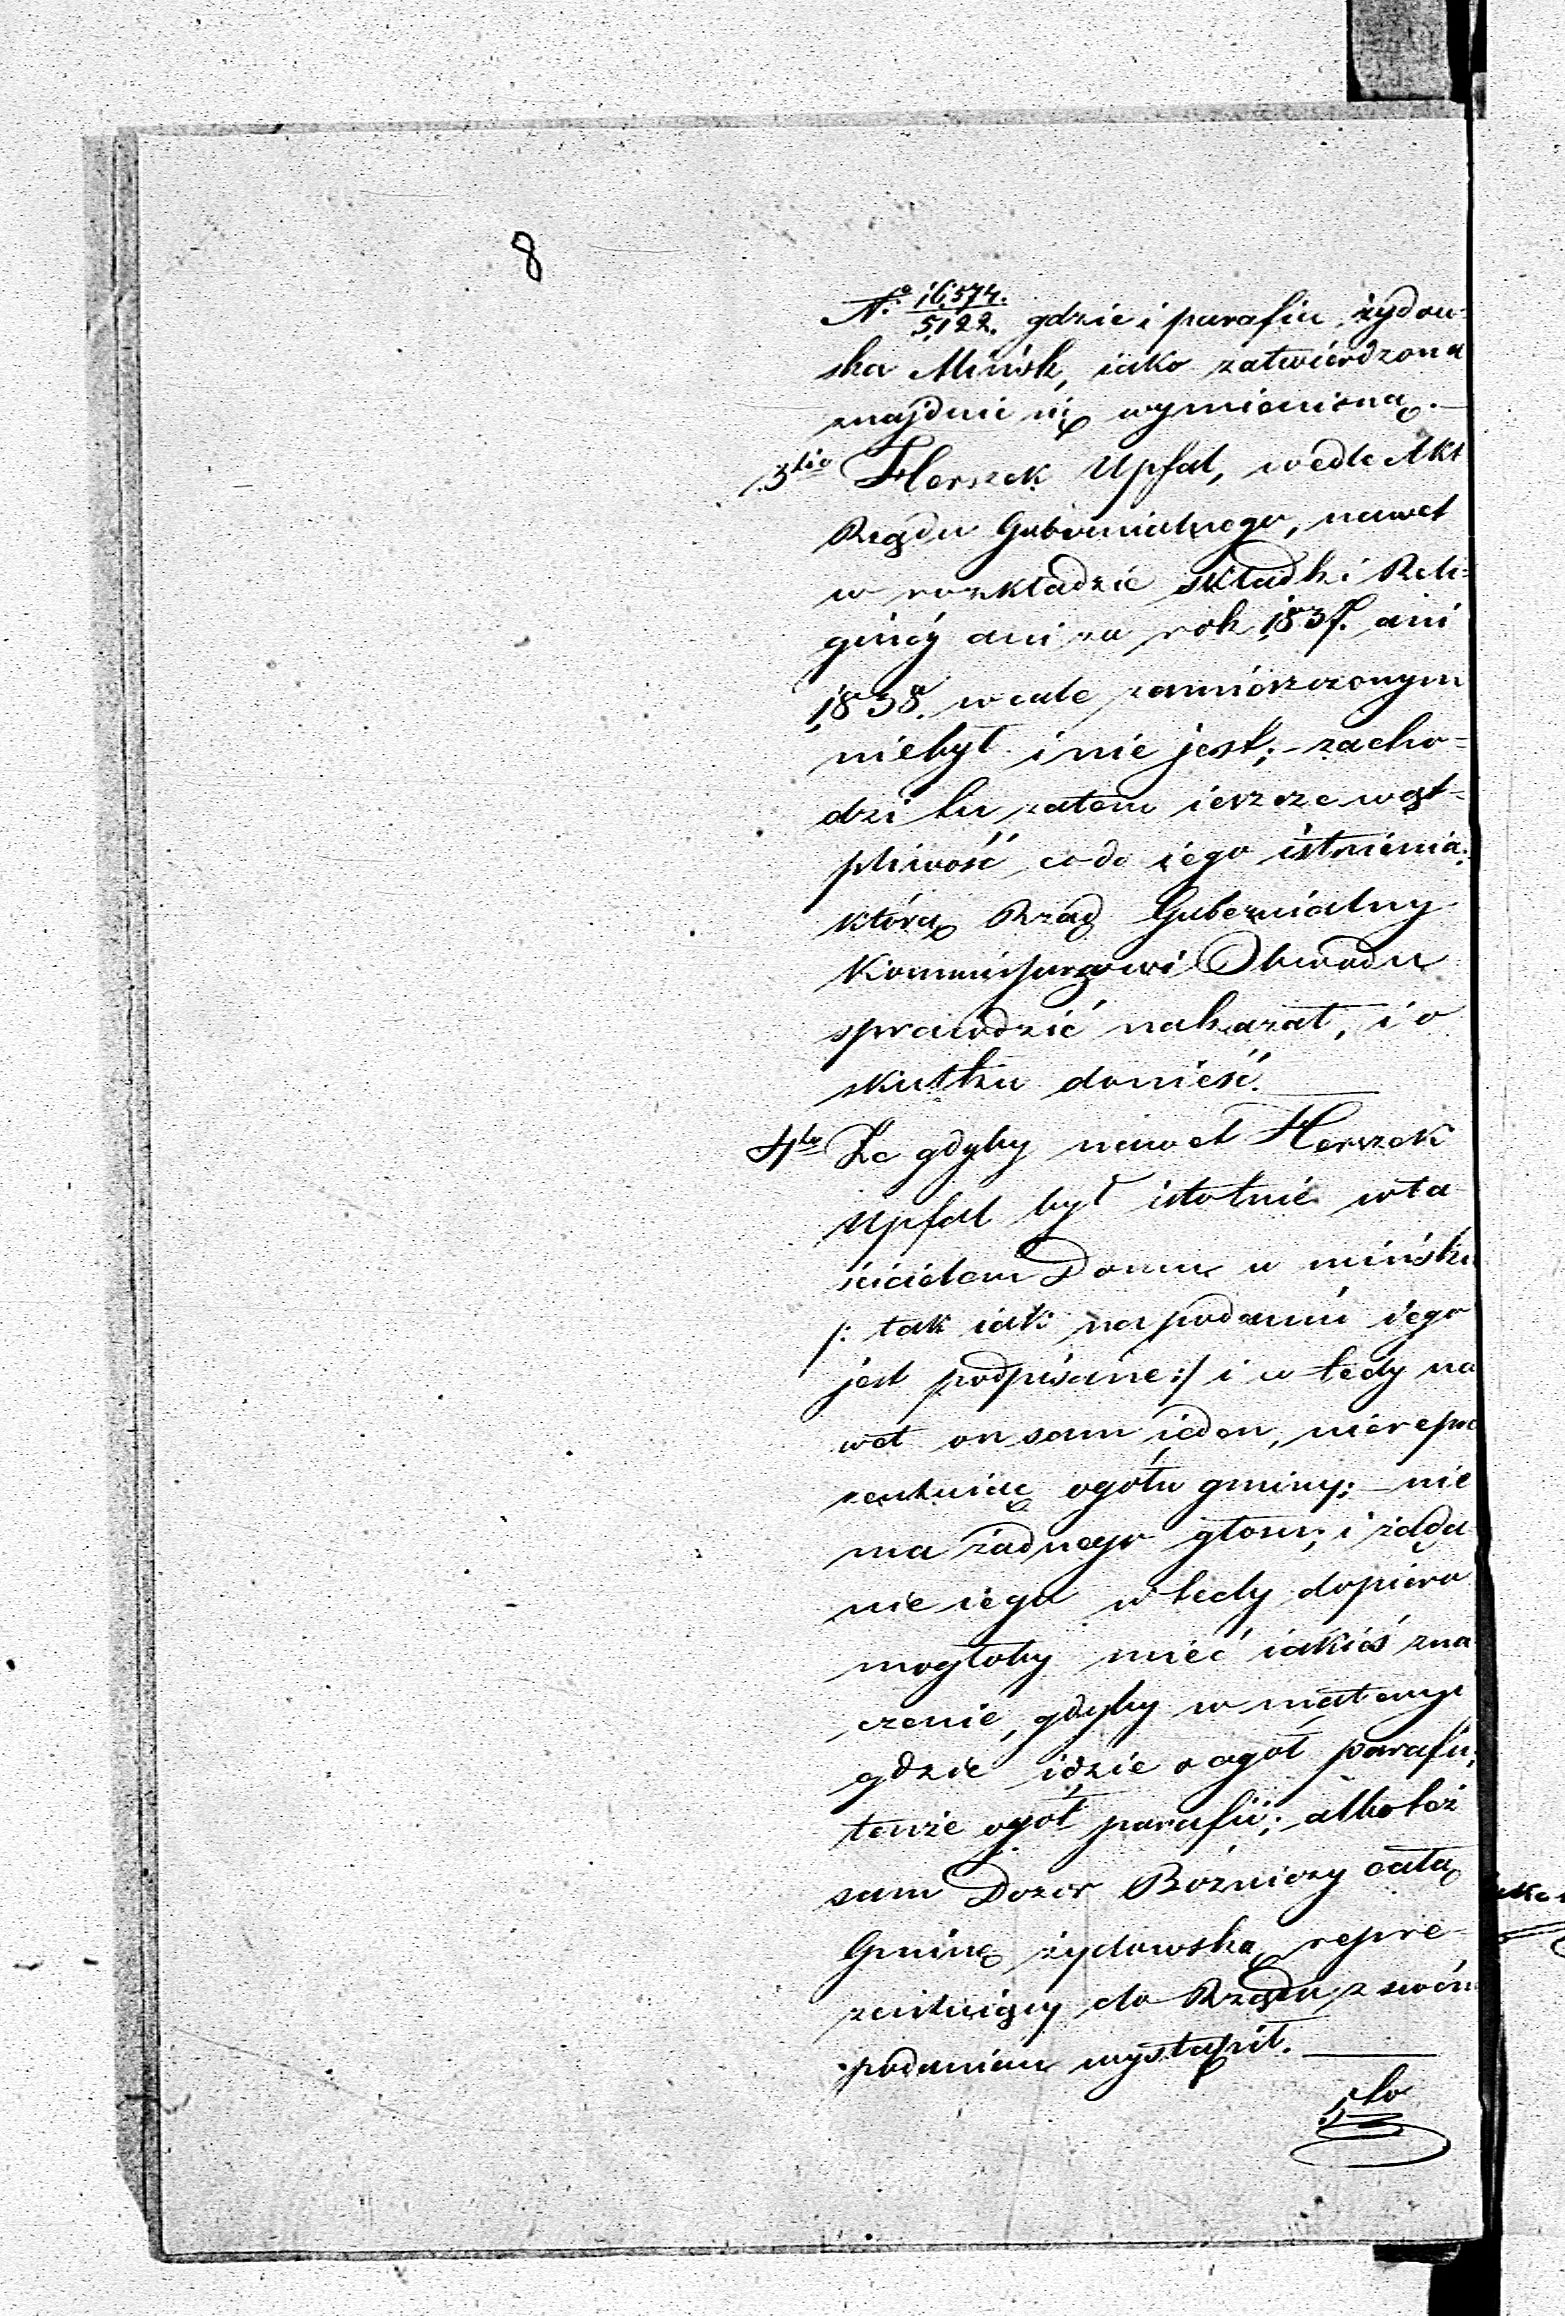 8
No 16,574./5,122. gdzie i parafia żydow-
ska Mińsk, iako zatwierdzona
znajduie się wymienioną.—
3tio Herszek Upfal, wedle Akt
Rządu Gubernialnego, nawet
w rozkładzie składki Reli-
giinéy ani za rok 1837. ani
1838. wcale zamieszczonym
niebył i nie jest; – zacho-
dzi tu zatem ieszcze wąt-
pliwość co do iego istnienia;
którą Rząd Gubernialny
Kommissarzowi Obwodu
sprawdzić nakazał, i o
skutku donieść.—
4to Że gdyby nawet Herszek
Upfal był istotnie wła
ścicielem Domu w mińsku
/: tak iak na podaniu iego
jest podpisane :/ i w tedy na
wet on sam ieden, nierepre
zentuiąc ogółu gminy; – nie
ma żadnego głosu; i żąda
nie iego w tedy dopiero
mogłoby mieć iakieś zna
czenie, gdyby w materyi
gdzie idzie o ogół parafii,
tenże ogół parafii; albo też
sam Dozór Bóżniczy całą
Gminę żydowską repre-
zentuiący do Rządu z swém
podaniem wystąpił.—
5to